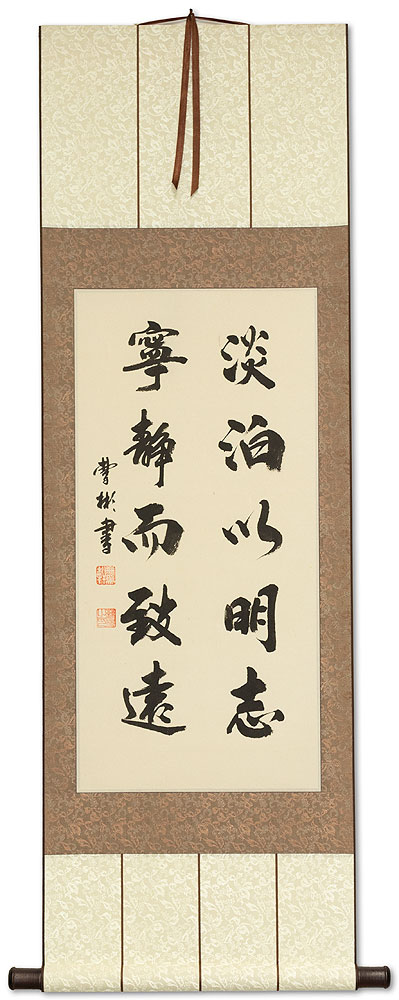 淡泊以明志
寧靜而致遠
曹彬書